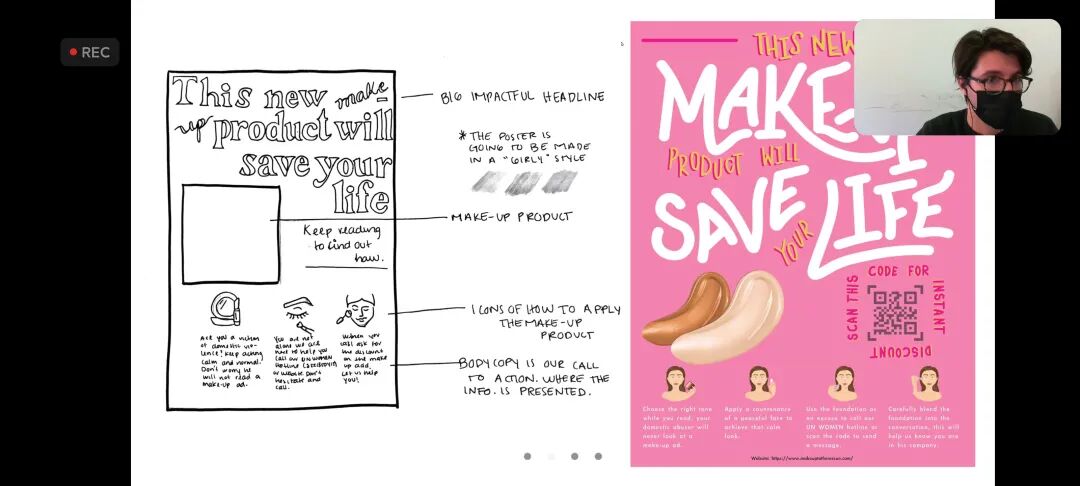 REC
This new make-
up product will
save your
life
Keep reading
to find out
how.
Are you a victim
of domestic vio-
lence? Keep acting
calm and normal.
Don't worry he
will not read a
make-up ad.
You are not
alone we are
here to help you
call our UN WOMEN
hotline
or website don't
hesitate and
call.
When you
call ask for
the discount
on the make
up add.
Let us help
you!
BIG IMPACTFUL HEADLINE
* THE POSTER IS
GOING TO BE MADE
IN A "GIRLY" STYLE
MAKE-UP PRODUCT
ICONS OF HOW TO APPLY
THE MAKE-UP
PRODUCT
BODYCOPY IS OUR CALL
TO ACTION. WHERE THE
INFO. IS PRESENTED.
THIS NEW
MAKE-
PRODUCT WILL
SAVE
YOUR
LIFE
SCAN THIS
CODE FOR
INSTANT
DISCOUNT
Choose the right tone
while you read, your
domestic abuser will
never look at a
make-up ad.
Apply a countenance
of a peaceful face to
achieve that calm
look.
Use the foundation as
an excuse to call our
UN WOMEN hotline or
scan the code to send
a message.
Carefully blend the
foundation into the
conversation, this will
help us know you are
in his company.